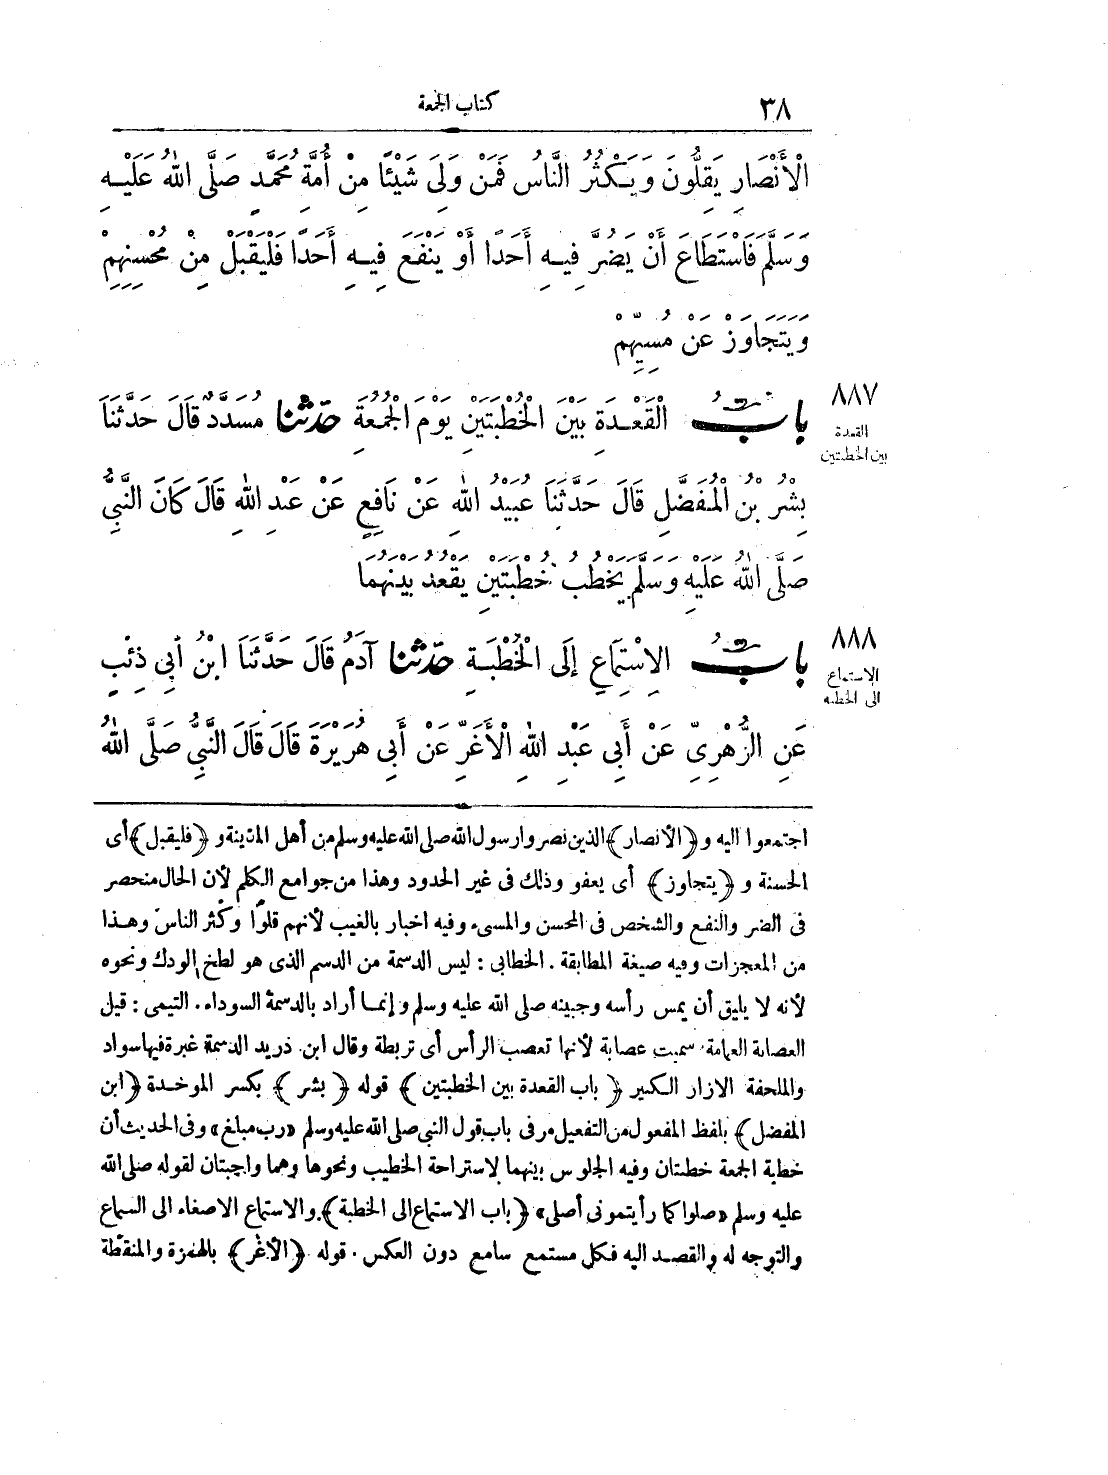 ٣٨
كتاب الجمعة
الْأَنْصَارِ يَقِلُّونَ وَيَكْثُرُ النَّاسُ فَمَنْ وَلِيَ شَيْئًا مِنْ أُمَّةِ مُحَمَّدٍ صَلَّى اللهُ عَلَيْهِ
وَسَلَّمَ فَاسْتَطَاعَ أَنْ يَضُرَّ فِيهِ أَحَدًا أَوْ يَنْفَعَ فِيهِ أَحَدًا فَلْيَقْبَلْ مِنْ مُحْسِنِهِمْ
وَيَتَجَاوَزْ عَنْ مُسِيِّهِمْ
٨٨٧
القعدة
بين الخطبتين
بابُ الْقَعْدَةِ بَيْنَ الْخُطْبَتَيْنِ يَوْمَ الْجُمُعَةِ حدثنا مُسَدَّدٌ قَالَ حَدَّثَنَا
بِشْرُ بْنُ الْمُفَضَّلِ قَالَ حَدَّثَنَا عُبَيْدُ اللهِ عَنْ نَافِعٍ عَنْ عَبْدِ اللهِ قَالَ كَانَ النَّبِيُّ
صَلَّى اللهُ عَلَيْهِ وَسَلَّمَ يَخْطُبُ خُطْبَتَيْنِ يَقْعُدُ بَيْنَهُمَا
٨٨٨
الاستماع
الى الخطبة
بابُ الِاسْتِمَاعِ إِلَى الْخُطْبَةِ حدثنا آدَمُ قَالَ حَدَّثَنَا ابْنُ أَبِي ذِئْبٍ
عَنِ الزُّهْرِيِّ عَنْ أَبِي عَبْدِ اللهِ الْأَغَرِّ عَنْ أَبِي هُرَيْرَةَ قَالَ قَالَ النَّبِيُّ صَلَّى اللهُ
اجتمعوا اليه و﴿الأنصار﴾ الذين نصروا رسول الله صلى الله عليه وسلم من أهل المدينة و﴿فليقبل﴾ أى
الحسنة و ﴿يتجاوز﴾ أى يعفو وذلك فى غير الحدود وهذا من جوامع الكلم لأن الحال منحصر
فى الضر والنفع والشخص فى المحسن والمسىء وفيه اخبار بالغيب لأنهم قلوا وكثر الناس وهذا
من المعجزات وفيه صيغة المطابقة . الخطابى : ليس الدسمة من الدسم الذى هو لطخ الودك ونحوه
لأنه لا يليق أن يمس رأسه وجبينه صلى الله عليه وسلم وإنما أراد بالدسمة السوداء . التيمى : قيل
العصابة العمامة سميت عصابة لأنها تعصب الرأس أى تربطة وقال ابن دريد الدسمة غبرة فيها سواد
والملحفة الازار الكبير ﴿باب القعدة بين الخطبتين﴾ قوله ﴿بشر﴾ بكسر الموحدة ﴿ابن
المفضل﴾ بلفظ المفعول من التفعيل مر فى باب قول النبى صلى الله عليه وسلم «رب مبلغ» وفى الحديث أن
خطبة الجمعة خطبتان وفيه الجلوس بينهما لاستراحة الخطيب ونحوها وهما واجبتان لقوله صلى الله
عليه وسلم «صلوا كما رأيتمونى أصلى» ﴿باب الاستماع الى الخطبة﴾ والاستماع الاصغاء الى السماع
والتوجه له والقصد اليه فكل مستمع سامع دون العكس . قوله ﴿الأغر﴾ بالهمزة والمنقطة